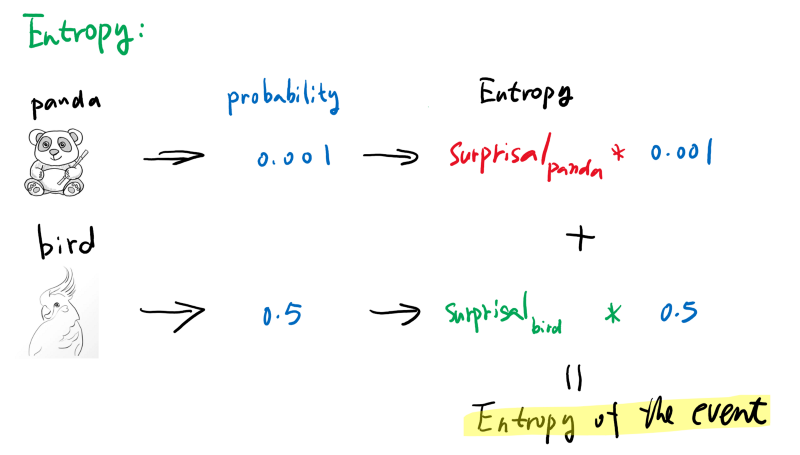 Entropy:
panda probability Entropy
0.001 surprisal panda * 0.001
+
bird
0.5 surprisal bird * 0.5
=
Entropy of the event